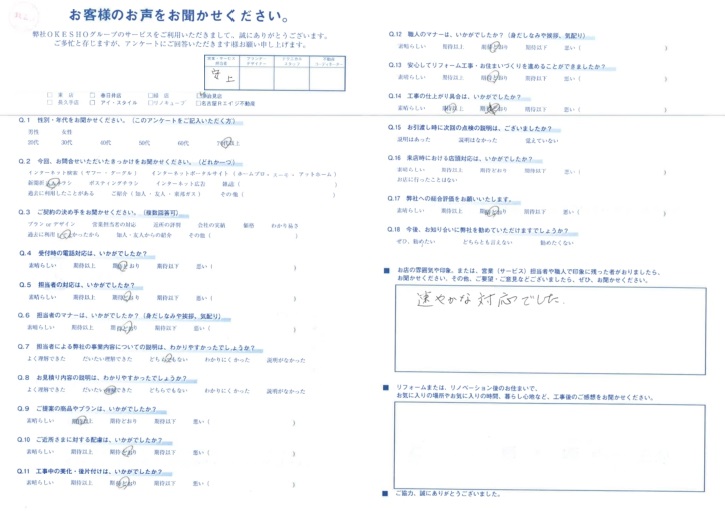 お客様のお声をお聞かせください。
弊社OKESHOグループのサービスをご利用いただきまして、誠にありがとうございます。
ご多忙と存じますが、アンケートにご回答いただきます様お願い申し上げます。
営業・サービス担当者
プランナー デザイナー
ショールーム スタッフ
不動産 コーディネーター
守上
本店 春日井店 緑店
長久手店 アイ・スタイル リノキューブ 名古屋Rエイジ不動産
Q.1 性別・年代をお聞かせください。（このアンケートをご記入いただく方）
男性 女性
20代 30代 40代 50代 60代 70代以上
Q.2 今回、お問合せいただいたきっかけをお聞かせください。（どれか一つ）
インターネット検索（ヤフー・グーグル） インターネットポータルサイト（ホームプロ・スーモ・アットホーム）
新聞折込チラシ ポスティングチラシ インターネット広告 雑誌（ ）
過去に利用したことがある ご紹介（知人・友人・東邦ガス） その他（ ）
Q.3 ご契約の決め手をお聞かせください。（複数回答可）
プラン or デザイン 営業担当者の対応 近所の評判 会社の実績 価格 わかり易さ
過去に利用してよかったから 知人・友人からの紹介 その他（ ）
Q.4 受付時の電話対応は、いかがでしたか？
素晴らしい 期待以上 期待どおり 期待以下 悪い（ ）
Q.5 担当者の対応は、いかがでしたか？
素晴らしい 期待以上 期待どおり 期待以下 悪い（ ）
Q.6 担当者のマナーは、いかがでしたか？（身だしなみや挨拶、気配り）
素晴らしい 期待以上 期待どおり 期待以下 悪い（ ）
Q.7 担当者による弊社の事業内容についての説明は、わかりやすかったでしょうか？
よく理解できた だいたい理解できた どちらでもない わかりにくかった 説明がなかった
Q.8 お見積り内容の説明は、わかりやすかったでしょうか？
よく理解できた だいたい理解できた どちらでもない わかりにくかった 説明がなかった
Q.9 ご提案の商品やプランは、いかがでしたか？
素晴らしい 期待以上 期待どおり 期待以下 悪い（ ）
Q.10 ご近所さまに対する配慮は、いかがでしたか？
素晴らしい 期待以上 期待どおり 期待以下 悪い（ ）
Q.11 工事中の美化・後片付けは、いかがでしたか？
素晴らしい 期待以上 期待どおり 期待以下 悪い（ ）
Q.12 職人のマナーは、いかがでしたか？（身だしなみや挨拶、気配り）
素晴らしい 期待以上 期待どおり 期待以下 悪い（ ）
Q.13 安心してリフォーム工事・お住まいづくりを進めることができましたか？
素晴らしい 期待以上 期待どおり 期待以下 悪い（ ）
Q.14 工事の仕上がり具合は、いかがでしたか？
素晴らしい 期待以上 期待どおり 期待以下 悪い（ ）
Q.15 お引渡し時に次回の点検の説明は、ございましたか？
説明はあった 説明はなかった 覚えていない
Q.16 来店時における店頭対応は、いかがでしたか？
素晴らしい 期待以上 期待どおり 期待以下 悪い（ ）
お店に行ったことはない
Q.17 弊社への総合評価をお願いいたします。
素晴らしい 期待以上 期待どおり 期待以下 悪い（ ）
Q.18 今後、お知り合いに弊社を勧めていただけますでしょうか？
ぜひ、勧めたい どちらとも言えない 勧めたくない
■ お店の雰囲気や印象、または、営業（サービス）担当者や職人で印象に残った者がおりましたら、
お聞かせください。その他、ご要望・ご意見などございましたら、ぜひ、お聞かせください。
速やかな対応でした。
■ リフォームまたは、リノベーション後のお住まいで、
お気に入りの場所やお気に入りの時間、暮らし心地など、工事後のご感想をお聞かせください。
■ ご協力、誠にありがとうございました。